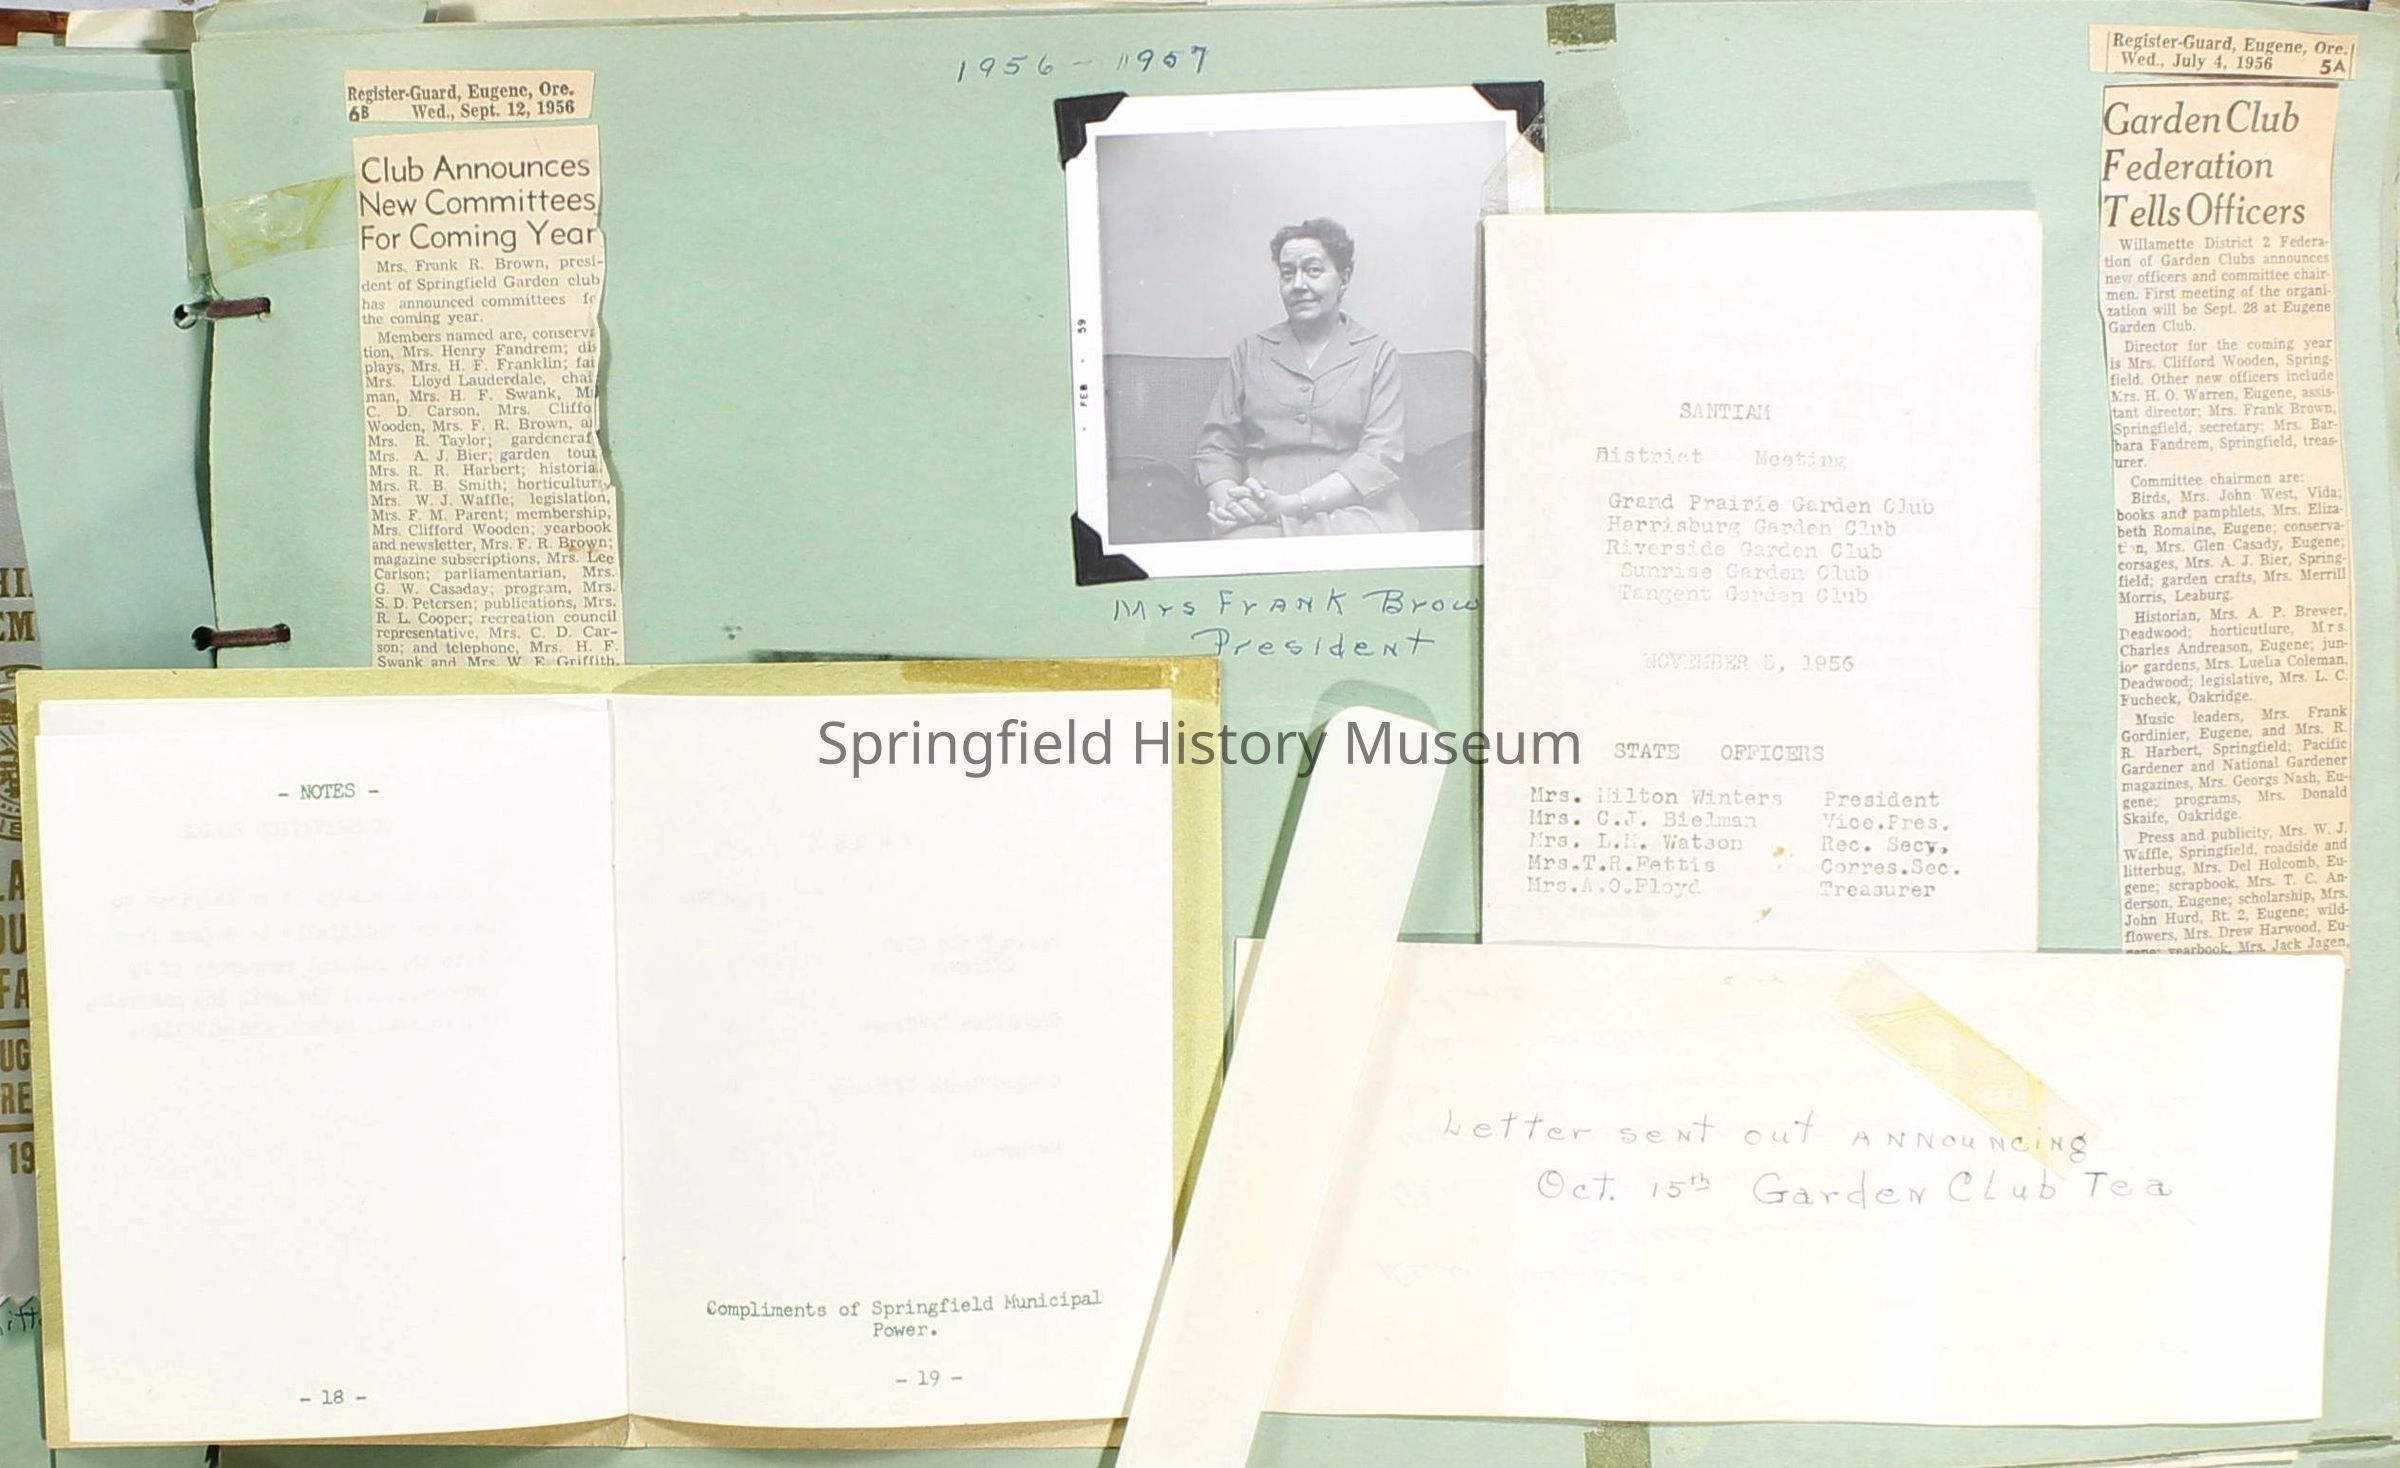 1956 - 1957
Register-Guard, Eugene, Ore.
6B Wed., Sept. 12, 1956
Club Announces
New Committees
For Coming Year
Mrs. Frank R. Brown, presi-
dent of Springfield Garden club
has announced committees
the coming year.
Members named are, conserva
tion, Mrs. Henry Fandrem; dis
plays, Mrs. H. F. Franklin; fai
Mrs. Lloyd Lauderdale, chai
man, Mrs. H. F. Swank, M
C. D. Carson, Mrs. Cliffo
Wooden, Mrs. F. R. Brown, a
Mrs. R. Taylor; gardencraf
Mrs. A. J. Bier; garden tour
Mrs. R. R. Harbert; historia
Mrs. R. B. Smith; horticultur
Mrs. W. J. Waffle; legislation,
Mrs. F. M. Parent; membership,
Mrs. Clifford Wooden; yearbook
and newsletter, Mrs. F. R. Brown;
magazine subscriptions, Mrs. Lee
Carlson; parliamentarian, Mrs.
G. W. Casaday; program, Mrs.
S. D. Petersen; publications, Mrs.
R. L. Cooper; recreation council
representative, Mrs. C. D. Car-
son; and telephone, Mrs. H. F.
Swank and Mrs. W. E. Griffith.
FEB · 59
Mrs Frank Brow
President
SANTIAM
District Meeting
Grand Prairie Garden Club
Harrisburg Garden Club
Riverside Garden Club
Sunrise Garden Club
Tangent Garden Club
NOVEMBER 5, 1956
STATE OFFICERS
Mrs. Hilton Winters President
Mrs. C.J. Bielman Vice.Pres.
Mrs. L.M. Watson Rec. Secy,
Mrs.T.R.Fettis Corres.Sec.
Mrs.A.O.Floyd Treasurer
Register-Guard, Eugene, Ore.
Wed., July 4, 1956 5A
Garden Club
Federation
Tells Officers
Willamette District 2 Federa-
tion of Garden Clubs announces
new officers and committee chair-
men. First meeting of the organi-
zation will be Sept. 28 at Eugene
Garden Club.
Director for the coming year
is Mrs. Clifford Wooden, Spring-
field. Other new officers include
Mrs. H. O. Warren, Eugene, assis-
tant director; Mrs. Frank Brown,
Springfield, secretary; Mrs. Bar-
bara Fandrem, Springfield, treas-
urer.
Committee chairmen are:
Birds, Mrs. John West, Vida;
books and pamphlets, Mrs. Eliza-
beth Romaine, Eugene; conserva-
tion, Mrs. Glen Casady, Eugene;
corsages, Mrs. A. J. Bier, Spring-
field; garden crafts, Mrs. Merrill
Morris, Leaburg.
Historian, Mrs. A. P. Brewer,
Deadwood; horticutlure, Mrs.
Charles Andreason, Eugene; jun-
ior gardens, Mrs. Luella Coleman,
Deadwood; legislative, Mrs. L. C.
Fucheck, Oakridge.
Music leaders, Mrs. Frank
Gordinier, Eugene, and Mrs. R.
R. Harbert, Springfield; Pacific
Gardener and National Gardener
magazines, Mrs. Georgs Nash, Eu-
gene; programs, Mrs. Donald
Skaife, Oakridge.
Press and publicity, Mrs. W. J.
Waffle, Springfield, roadside and
litterbug, Mrs. Del Holcomb, Eu-
gene; scrapbook, Mrs. T. C. An-
derson, Eugene; scholarship, Mrs.
John Hurd, Rt. 2, Eugene; wild-
flowers, Mrs. Drew Harwood, Eu-
gene; yearbook, Mrs. Jack Jagen,
Springfield History Museum
- NOTES -
- 18 -
Compliments of Springfield Municipal
Power.
- 19 -
Letter sent out announcing
Oct. 15th Garden Club Tea